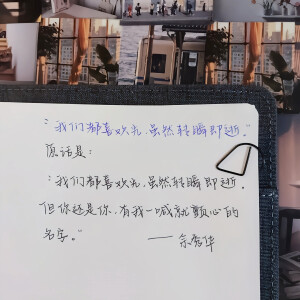 “我们都喜欢光,虽然转瞬即逝。”
原话是:
“我们都喜欢光,虽然转瞬即逝,
但你还是你,有我一喊就颤心的
名字。”
——余秀华